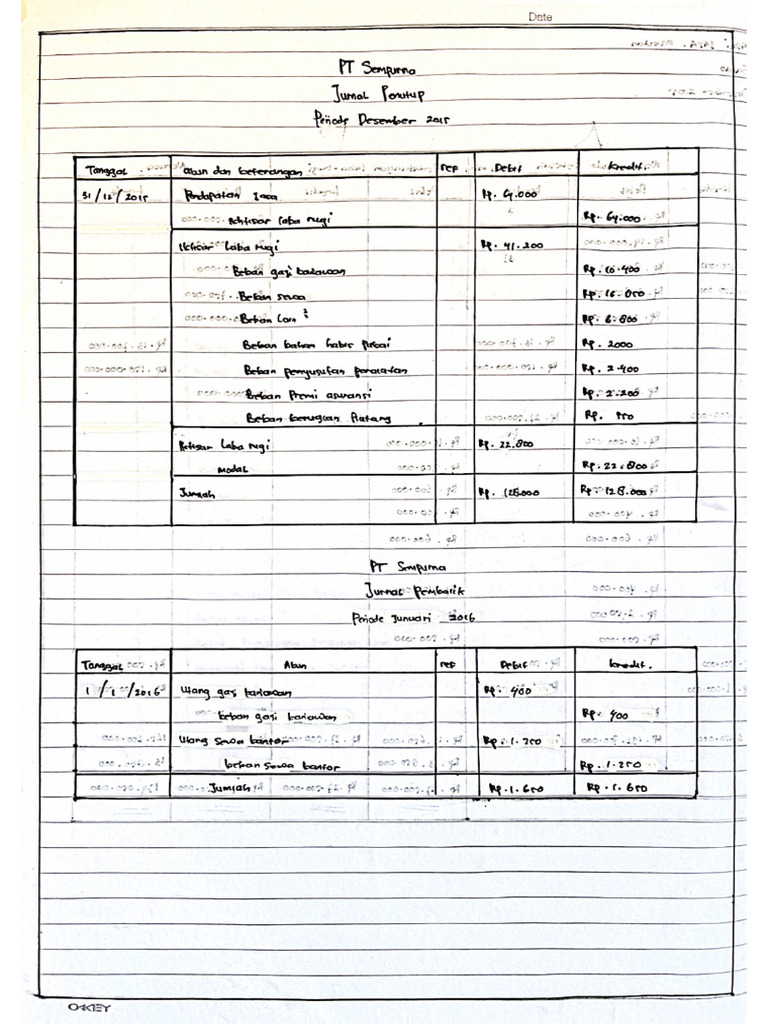 Date
PT Sempurna
Jurnal Penutup
Periode Desember 2015
Tanggal akun dan keterangan ref Debit kredit.
31/12/2015 Pendapatan Jasa Rp. 64.000
Ikhtisar laba rugi Rp. 64.000
Ikhtisar laba rugi Rp. 41.200
Beban gaji karyawan Rp. 10.400
Beban sewa Rp. 16.850
Beban lain² Rp. 6.800
Beban bahan habis pakai Rp. 2000
Beban penyusutan peralatan Rp. 2.400
Beban Premi asuransi Rp. 2.200
Beban kerugian Piutang Rp. 550
Ikhtisar Laba rugi Rp. 22.800
modal Rp. 22.800
Jumlah Rp. 128.000 Rp. 128.000
PT Sempurna
Jurnal Pembalik
Periode Januari 2016
Tanggal Akun ref Debit kredit.
1/1/2016 Utang gaji karyawan Rp. 400
beban gaji karyawan Rp. 400
Utang Sewa kantor Rp. 1.250
beban sewa kantor Rp. 1.250
Jumlah Rp. 1.650 Rp. 1.650
OKEY